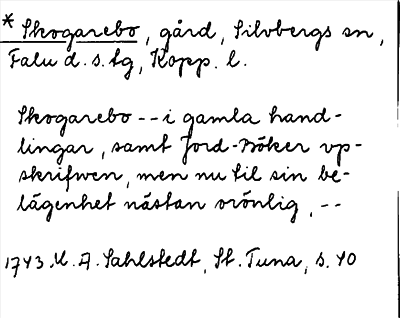 * Skogarebo, gård, Silvbergs sn,
Falu d.s.tg, Kopp. l.
Skogarebo -- i gamla hand-
lingar, samt Jord-Böker vp-
skrifwen, men nu til sin be-
lägenhet nästan orönlig, --
1743 M. A. Sahlstedt, St. Tuna, s. 40